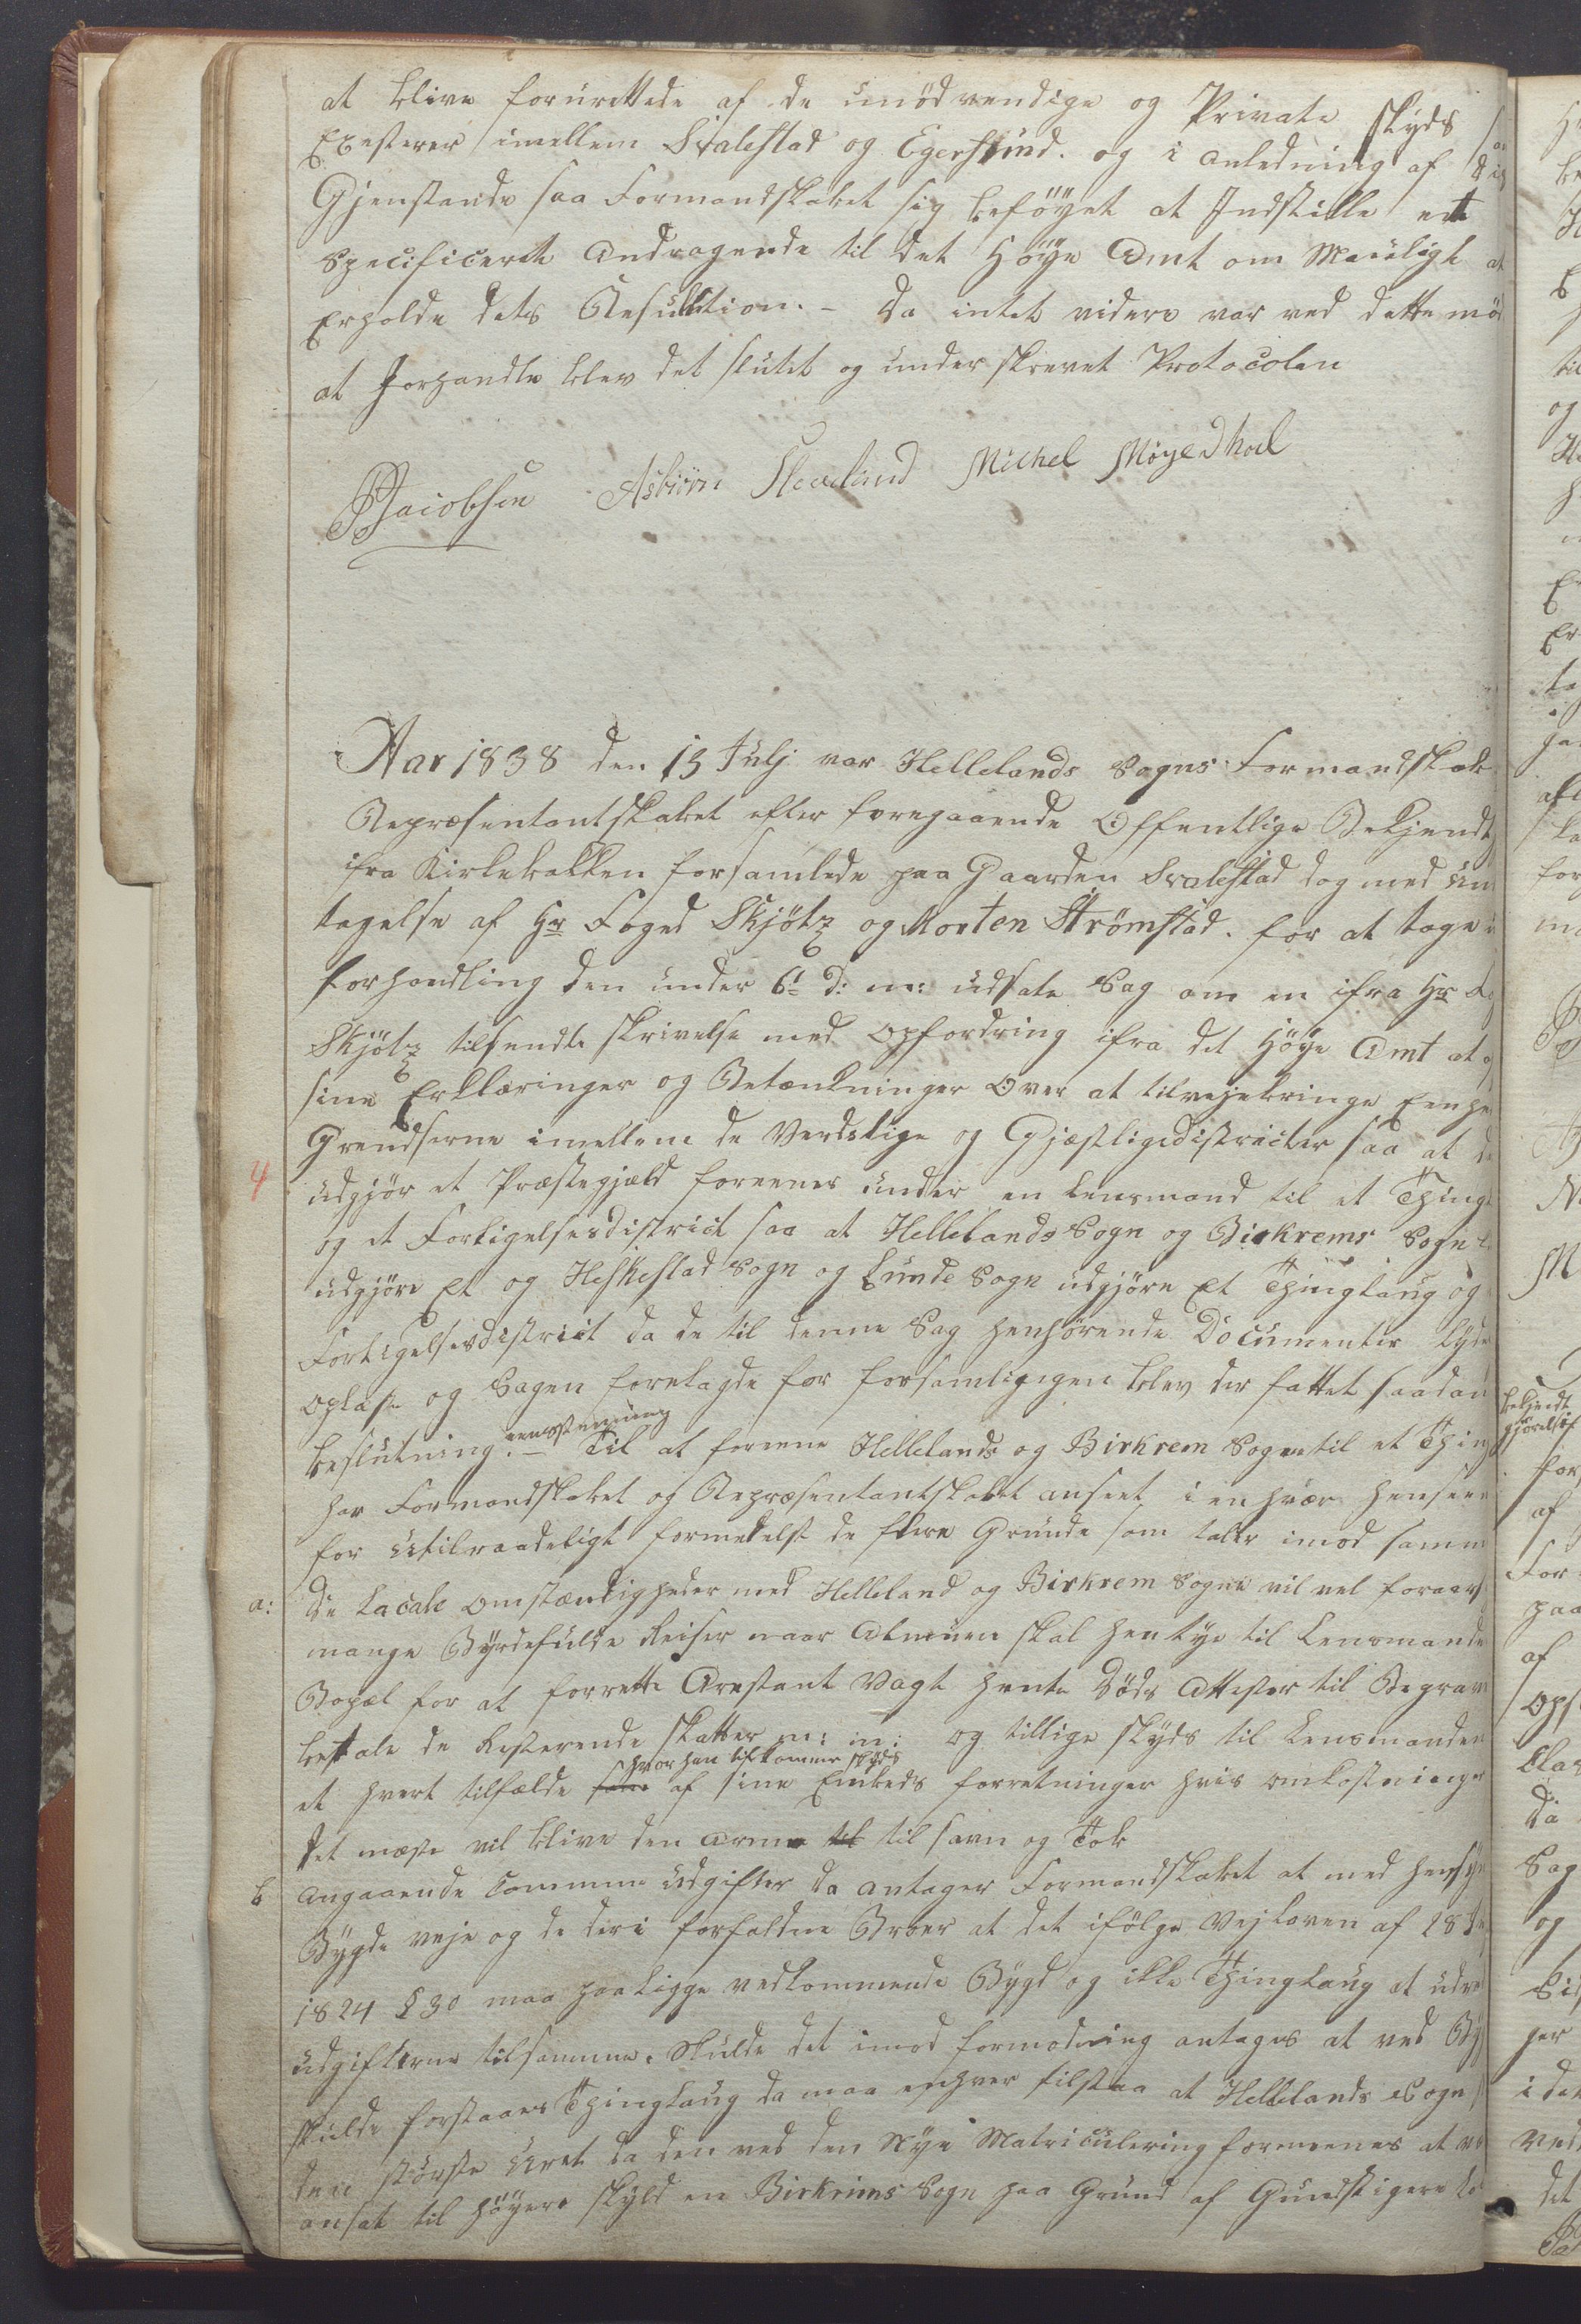 at blive forurettede af de unödvendige og Private skyds
Exesterer imellem Svalestad og Egersund. og i anledning af
Gjenstande saa Formandskabet sig beföyet at Indstille et
Specificeret Andragende til det Höye Amt om Mueligt at
Erholde dets Resulution. - Da intet videre var ved dette mö
at Forhandle blev det slutet og under skrevet Protocolen
Jacobsen Asbiörn Sleveland Michel Möyedhoel
Aar 1838 den 13 Julj var Hellelands Sogns Formandskab
Repræsentantskabet efter foregaaende Offentlige Bekjendt
ifra Kirkebakken forsamlede paa Gaarden Svalestad dog med Un
tagelse af Hr Foged Skjötz og Morten Strömstad. for at tage i
forhandling den under 6te d: m: udsate Sag om en ifra Hr
Skjötz tilsendte skrivelse med Opfordring ifra det Höye Amt at
sine Erklæringer og Betænkninger Over at tilvejebringe
Grendserne imellem de Verdslige og Gjæstligedistricter saa at de
4
udgjör et Præstegjæld foreenes under en Lensmand til et Thing
og et Forligelsesdistrict saa at Hellelands Sogn og Birkrems Sogn
udgjöre Et og Heskestad Sogn og Lunde Sogn udgjöre Et Thinglaug og
Forligelsesdistrict da de til denne Sag henhörende Documenter
Oplæste og Sagen foretagde for forsamligngen blev der fattet saadan
eenstemmig
beslutning. - Til at foreene Hellelands og Birkrem Sogne til et Thing
har Formandskabet og Repræsentantskabet anseet i enhver henseen
for Utilraadeligt formedelst de flere Grunde som taler imod samme
a: De Locale Omstændigheder med Helleland og Birkrem Sogne vil vel foraars
mange Byrdefulde Reiser naar Almuen skal hentye til Lensmande
Bopæl for at forrette Arestant Vagt hente Döds Attester til Begrav
betale de Resterende skatter m: m: og tillige skyds til Lensmanden
hvor han tilkommer skyds
et hvert tilfælde af sine Embeds forretninger hvis omkostninger
det meste vil blive den Arme til til savn og Tab
b angaaende Commune Udgifter da antager Formandskabet at med hensyn
Bygde veje og de deri forfaldne Broer at det ifölge Vejloven af 28
1824 § 30 maa paaligge vedkommende Bygd og ikke Thinglaug at udre
udgifterne tilsamme. Skulde det imod formodning antages at ved By
skulde forstaaes Thinglaug da maa enhver tilstaa at Hellelands Sogn
den störste Uret da den ved den Nye Matriculering formeenes at
ansat til höyere skyld en Birkrims Sogn paa Grund af Gunstigere